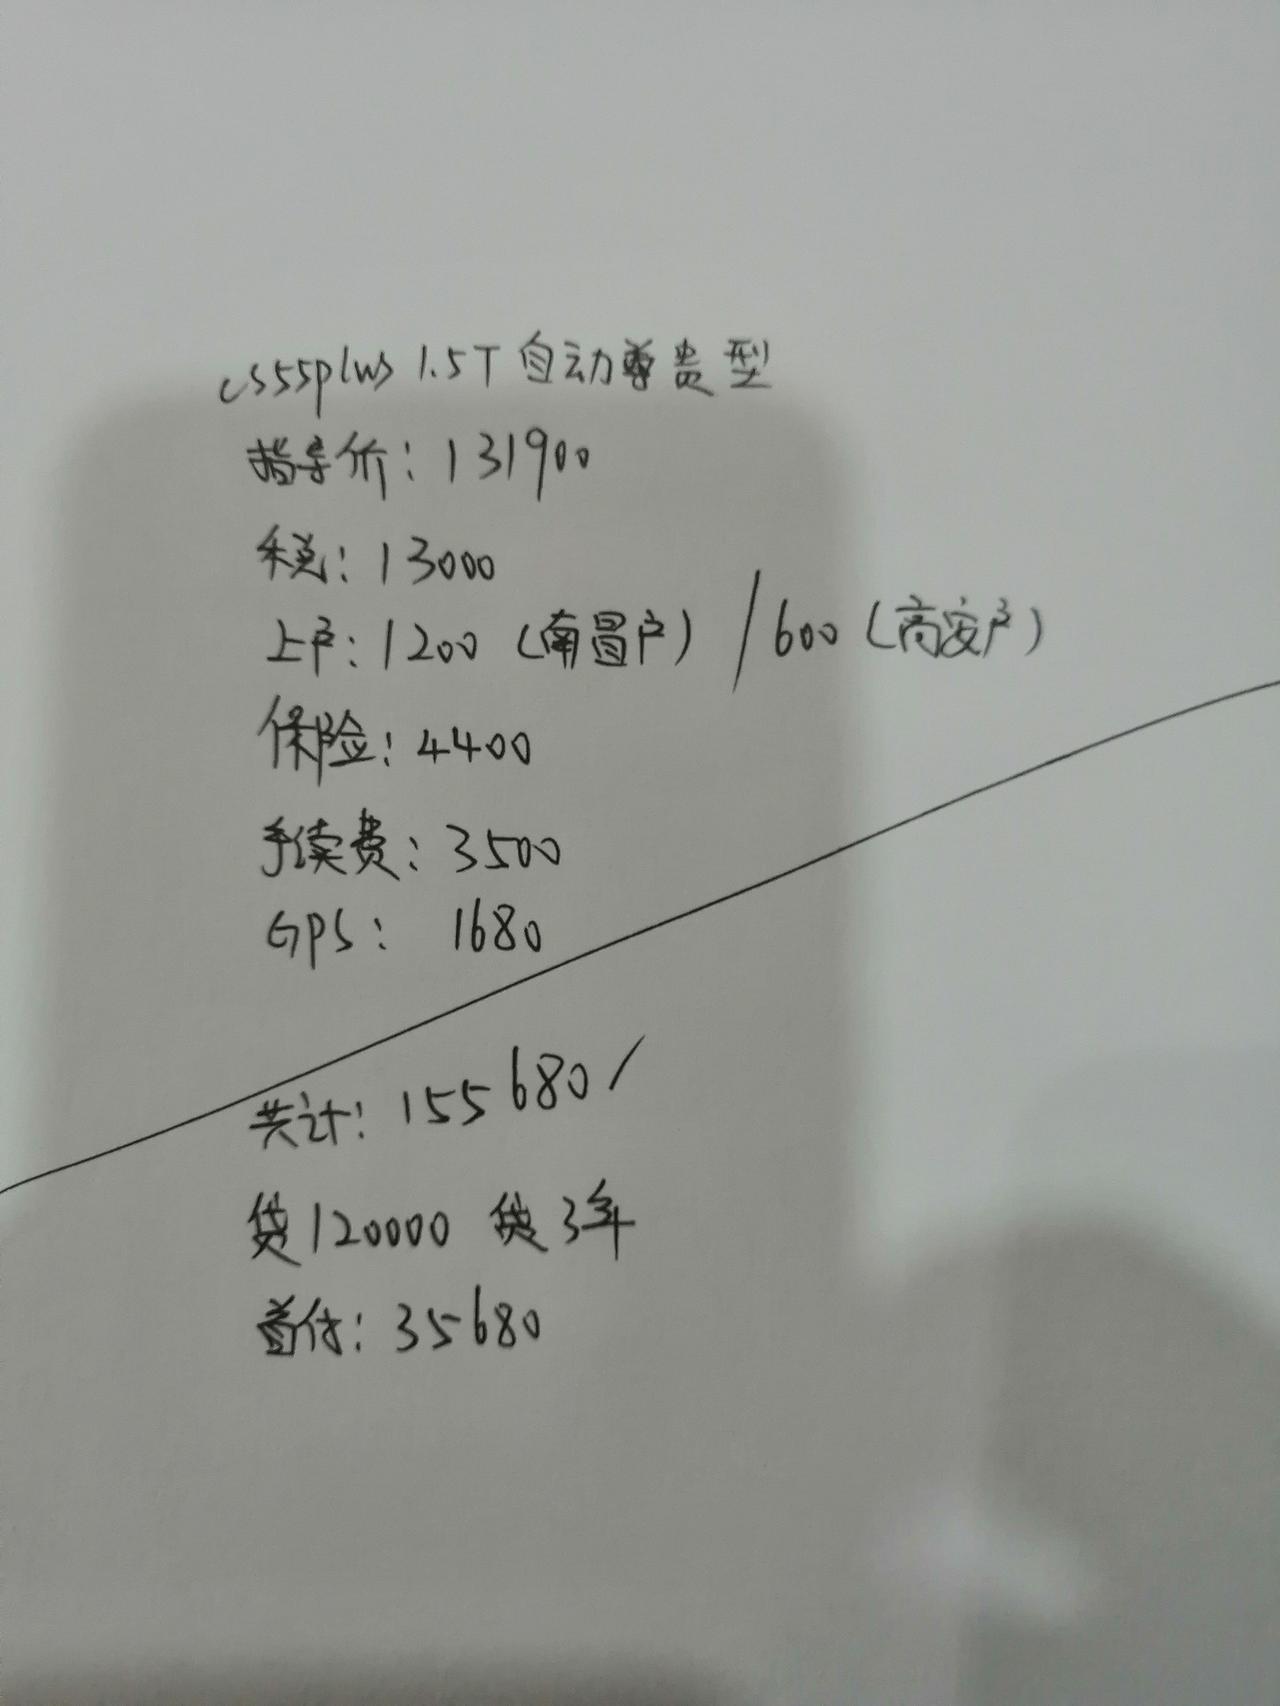 cs55plus 1.5T 自动尊贵型
指导价: 131900
税: 13000
上户: 1200 (南昌户) / 600 (高安户)
保险: 4400
手续费: 3500
GPS: 1680
共计: 155680/
贷120000 贷3年
首付: 35680